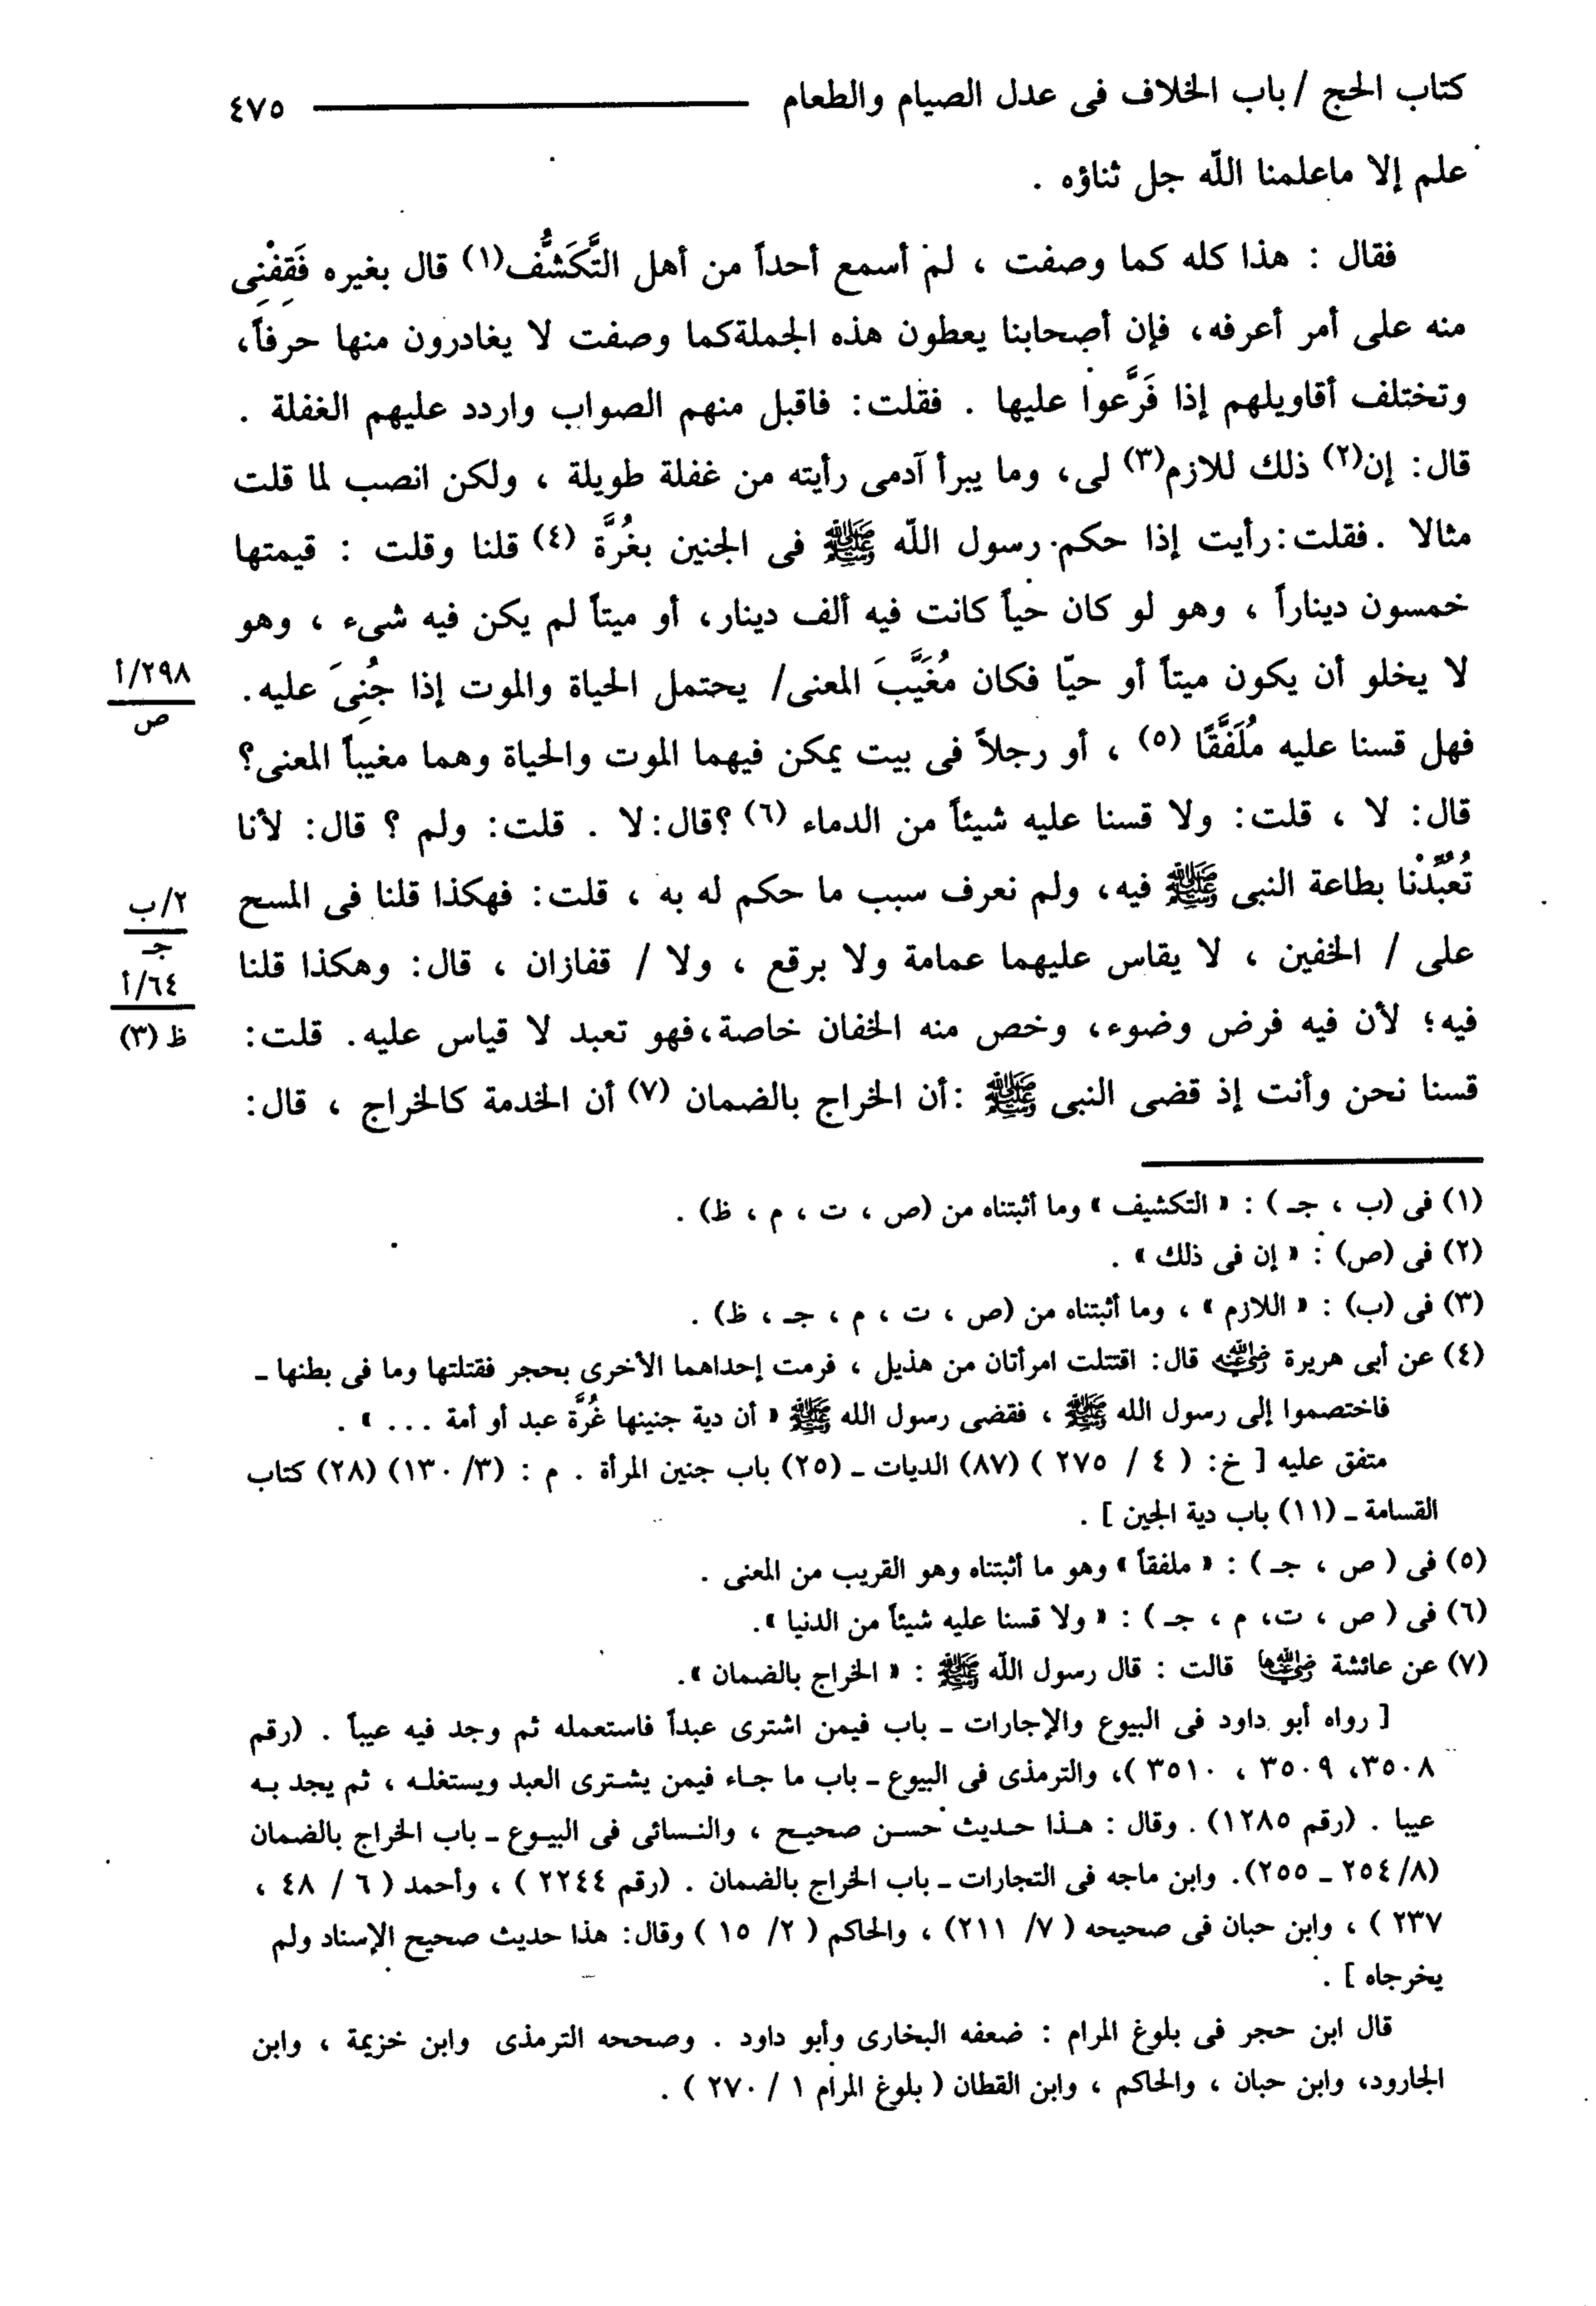 كتاب الحج / باب الخلاف فى عدل الصيام والطعام ٤٧٥
علم إلا ماعلمنا اللّه جل ثناؤه .
فقال : هذا كله كما وصفت ، لم أسمع أحداً من أهل التَّكَشُّف(١) قال بغيره فَقِفْنِى
منه على أمر أعرفه، فإن أصحابنا يعطون هذه الجملة كما وصفت لا يغادرون منها حرفاً،
وتختلف أقاويلهم إذا فَرَّعوا عليها . فقلت: فاقبل منهم الصواب واردد عليهم الغفلة .
قال: إن(٢) ذلك للازم(٣) لى، وما يبرأ آدمى رأيته من غفلة طويلة ، ولكن انصب لما قلت
مثالا . فقلت: رأيت إذا حكم رسول اللّه ﷺ فى الجنين بغُرَّة (٤) قلنا وقلت : قيمتها
خمسون ديناراً ، وهو لو كان حياً كانت فيه ألف دينار، أو ميتاً لم يكن فيه شىء ، وهو
لا يخلو أن يكون ميتاً أو حيّا فكان مُغَيَّبَ المعنى/ يحتمل الحياة والموت إذا جُنِىَ عليه.
٢٩٨/أ
ص
فهل قسنا عليه مُلَفَّقًا (٥) ، أو رجلاً فى بيت يمكن فيهما الموت والحياة وهما مغيباً المعنى؟
قال: لا ، قلت: ولا قسنا عليه شيئاً من الدماء (٦) ؟قال: لا . قلت: ولم ؟ قال: لأنا
تُعُبِّدْنا بطاعة النبى ﷺ فيه، ولم نعرف سبب ما حكم له به ، قلت: فهكذا قلنا فى المسح
٢/ب
جـ
على / الخفين ، لا يقاس عليهما عمامة ولا برقع ، ولا / قفازان ، قال: وهكذا قلنا
٦٤/أ
ظ (٣)
فيه؛ لأن فيه فرض وضوء، وخص منه الخفان خاصة،فهو تعبد لا قياس عليه. قلت:
قسنا نحن وأنت إذ قضى النبى ﷺ :أن الخراج بالضمان (٧) أن الخدمة كالخراج ، قال:
(١) فى (ب ، جـ ) : « التكشيف » وما أثبتناه من (ص ، ت ، م ، ظ) .
(٢) فى (ص) : « إن فى ذلك » .
(٣) فى (ب) : « اللازم » ، وما أثبتناه من (ص ، ت ، م ، جـ ، ظ) .
(٤) عن أبى هريرة رضي الله عنه قال: اقتتلت امرأتان من هذيل ، فرمت إحداهما الأخرى بحجر فقتلتها وما فى بطنها ـ
فاختصموا إلى رسول الله ﷺ ، فقضى رسول الله ﷺ « أن دية جنينها غُرَّة عبد أو أمة ... » .
متفق عليه [ خ: ( ٤ / ٢٧٥ ) (٨٧) الديات ـ (٢٥) باب جنين المرأة . م : (٣/ ١٣٠) (٢٨) كتاب
القسامة ـ (١١) باب دية الجين ] .
(٥) فى ( ص ، جـ ) : « ملفقاً » وهو ما أثبتناه وهو القريب من المعنى .
(٦) فى ( ص ، ت، م ، جـ ) : « ولا قسنا عليه شيئاً من الدنيا ».
(٧) عن عائشة رضي الله عنها قالت : قال رسول اللّه ﷺ : « الخراج بالضمان ».
[ رواه أبو داود فى البيوع والإجارات ـ باب فيمن اشترى عبداً فاستعمله ثم وجد فيه عيباً . (رقم
٣٥٠٨، ٣٥٠٩ ، ٣٥١٠ )، والترمذى فى البيوع ـ باب ما جاء فيمن يشترى العبد ويستغله ، ثم يجد به
عيبا . (رقم ١٢٨٥) . وقال : هذا حديث حسن صحيح ، والنسائى فى البيوع ـ باب الخراج بالضمان
(٨/ ٢٥٤ ـ ٢٥٥). وابن ماجه فى التجارات ـ باب الخراج بالضمان . (رقم ٢٢٤٤ ) ، وأحمد ( ٦ / ٤٨ ،
٢٣٧ ) ، وابن حبان فى صحيحه ( ٧/ ٢١١) ، والحاكم ( ٢/ ١٥ ) وقال: هذا حديث صحيح الإسناد ولم
يخرجاه ] .
قال ابن حجر فى بلوغ المرام : ضعفه البخارى وأبو داود . وصححه الترمذى وابن خزيمة ، وابن
الجارود، وابن حبان ، والحاكم ، وابن القطان ( بلوغ المرام ١ / ٢٧٠ ) .